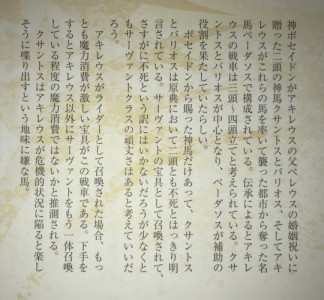 神ポセイドンがアキレウスの父ペレウスの婚姻祝いに
贈った二頭の神馬クサントスとバリオス、そしてアキ
レウスがこれらの馬を率いて襲った都市から奪った名
馬ペーダソスで構成されている。伝承によるとアキレ
ウスの戦車は三頭〜四頭立てと考えられている。クサ
ントスとバリオスが中心となり、ペーダソスが補助の
役割を果たしていたらしい。
　ポセイドンから賜った神馬だけあって、クサントス
とバリオスは原典において二頭とも不死とはっきり明
言されている。サーヴァントの宝具として召喚されて、
さすがに不死という訳にはいかないだろうが少なくと
もサーヴァントクラスの頑丈さはあると思われるだ
ろう。
　アキレウスがライダーとして召喚された場合、もっ
とも魔力消費が激しい宝具がこの戦車である。下手を
するとアキレウス以外にサーヴァントをもう一体召喚
している程度の魔力消費ではないかと推測される。
　クサントスはアキレウスが危機的状況に陥ると楽し
そうに喋り出すという地味に嫌な馬。